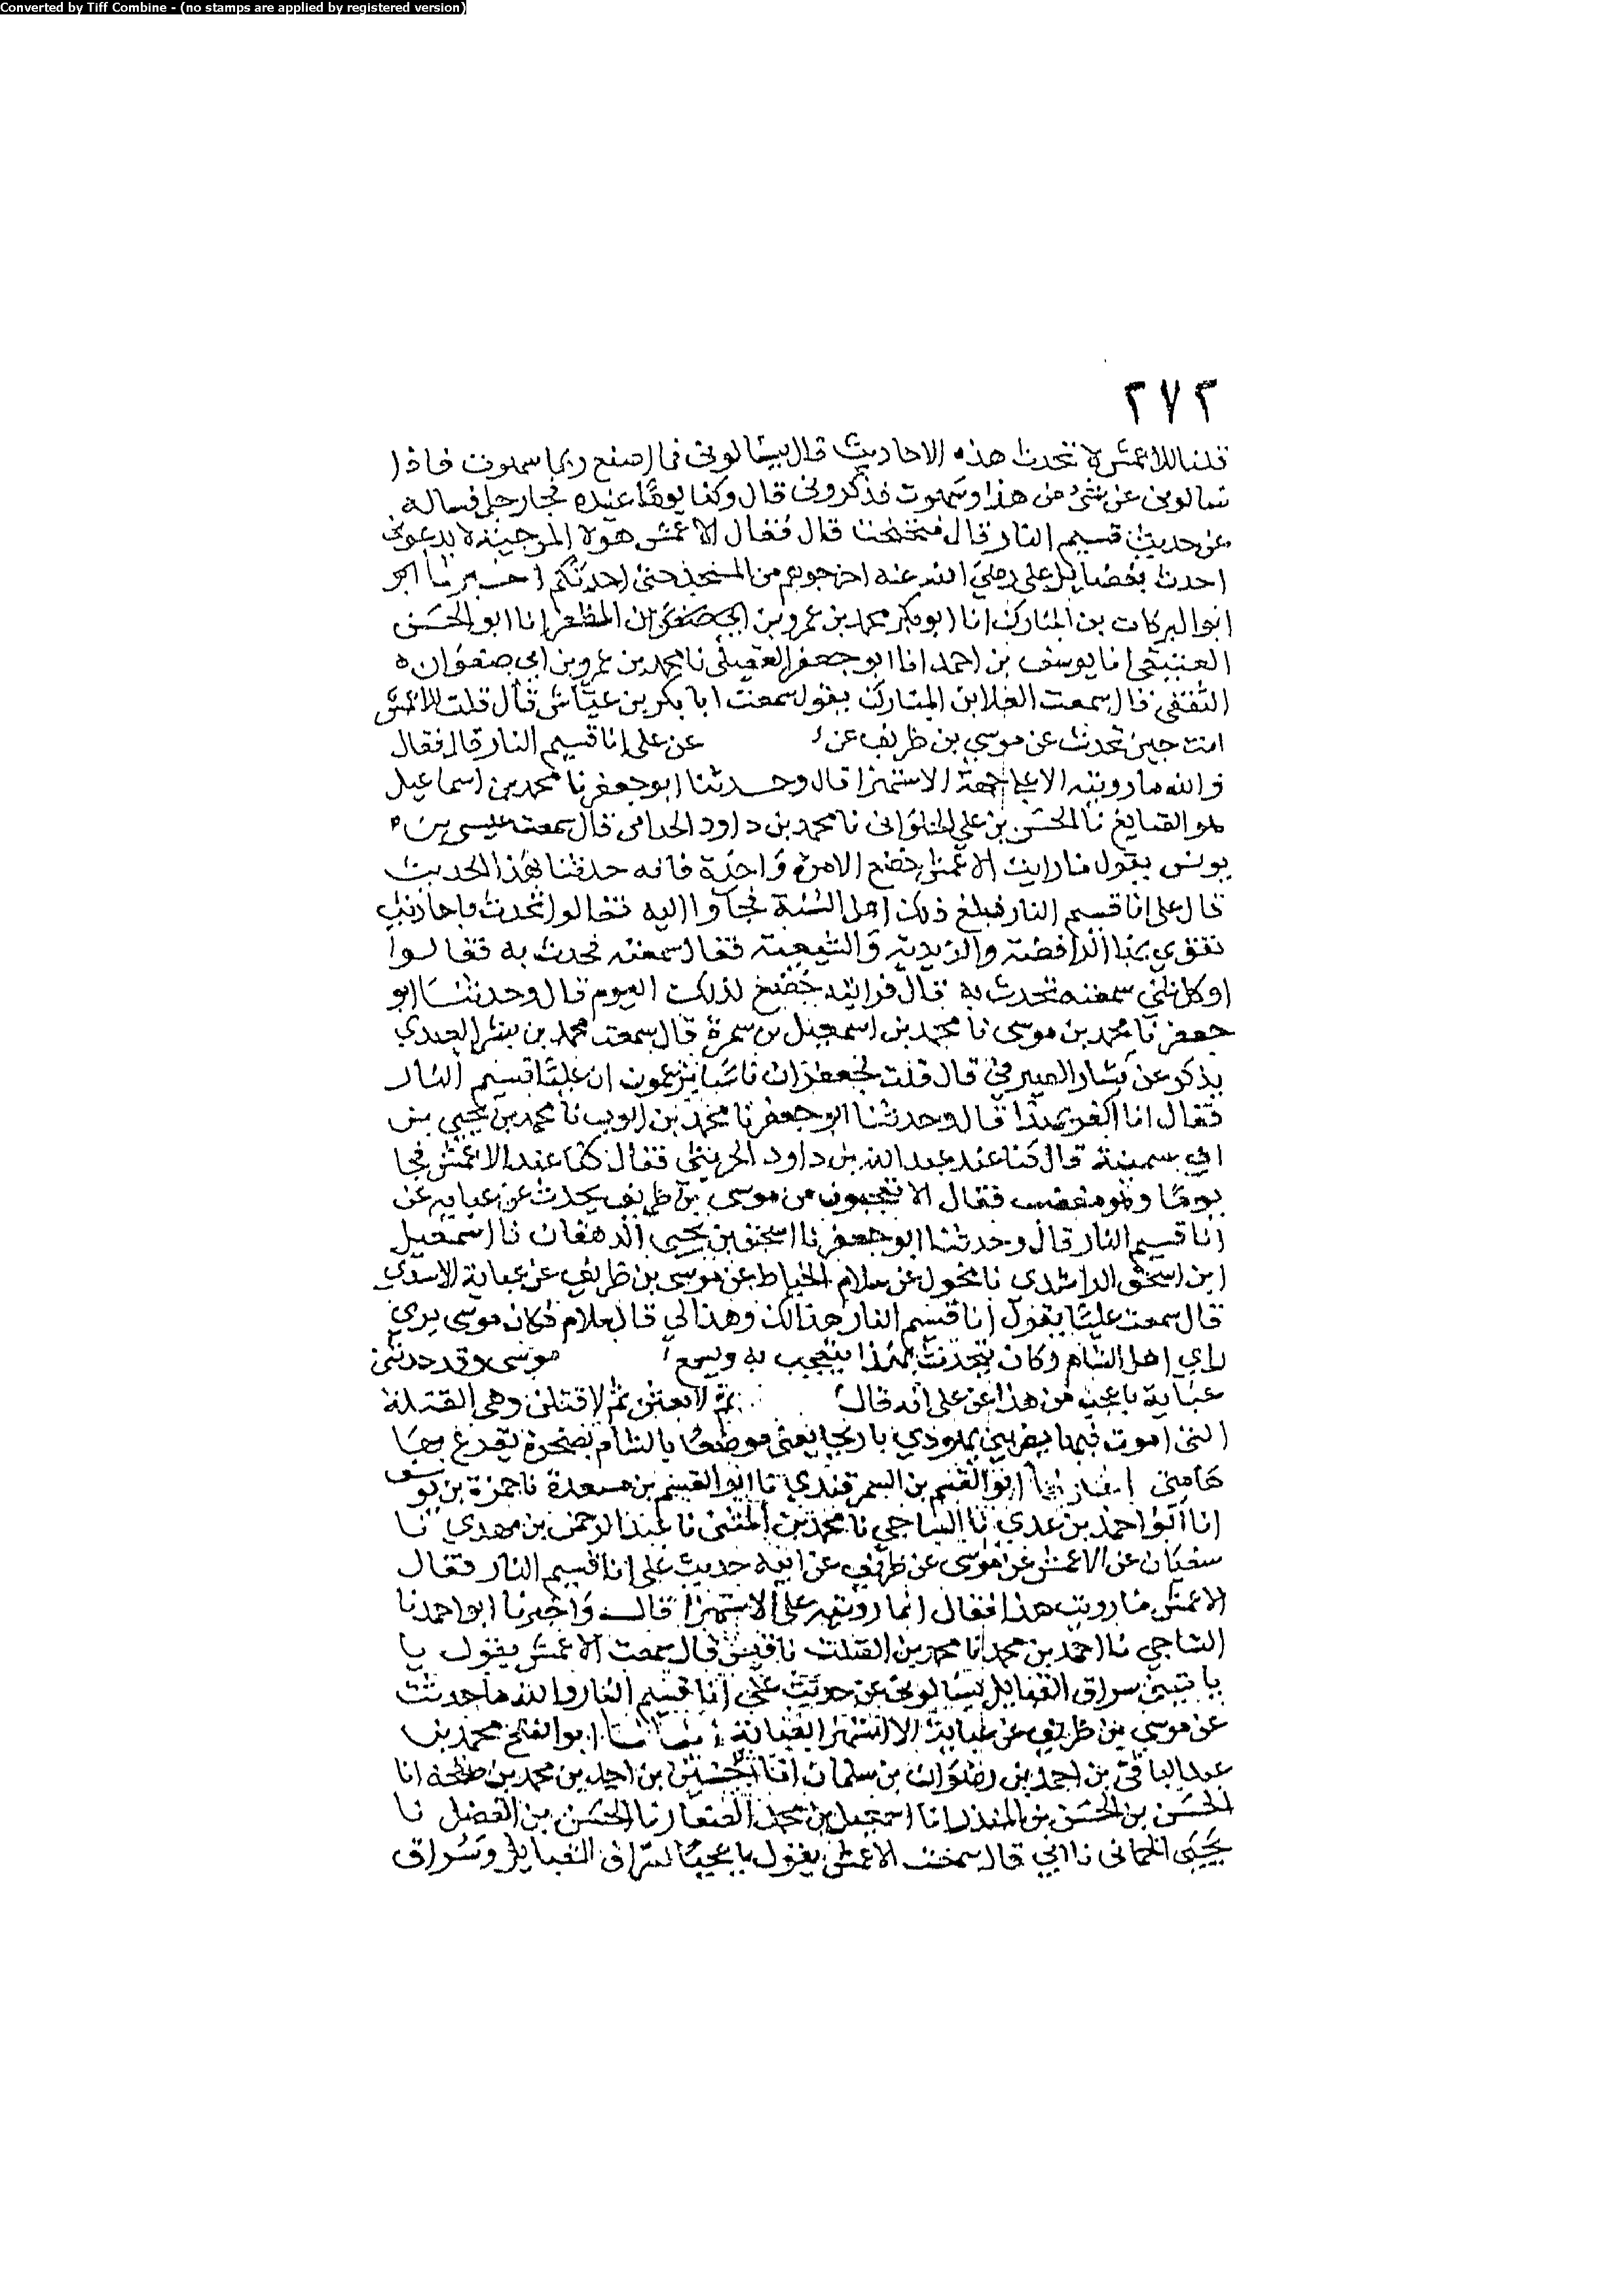 Converted by Tiff Combine - (no stamps are applied by registered version)
٢٧٢
قلنا للاعمش لا تحدث هذه الاحاديث قال يسالونى فما اصنع ربما سهوت فاذا
سالونى عن شئ من هذا وسهوت فذكرونى قال وكنا يوما عنده فجا رجل فساله
عن حديث قسيم النار قال فتنحنحت قال فقال الاعمش هولا المرجيئة لا يدعونى
احدث بفضايل على رضى الله عنه اخرجوهم من المسجد حتى احدثكم اخبرنا
ابو البركات بن المبارك انا ابو بكر محمد بن المظفر انا ابو الحسن
العتيقى انا يوسف بن احمد انا ابو جعفر العقيلى نا محمد بن عمرو بن ابى صفوان
الثقفى قال سمعت العلا بن المبارك يقول سمعت ابا بكر بن عياش قال قلت للاعمش
انت حين تحدث عن موسى بن طريف عن عن على انا قسيم النار قال فقال
والله ما رويته الا على جهة الاستهزا قال وحدثنا ابو جعفر نا محمد بن اسماعيل
هو الصايغ نا الحسن بن على الحلوانى نا محمد بن داود الحدانى قال سمعت عيسى بن
يونس يقول ما رايت الاعمش خضع الا مرة واحدة فانه حدثنا بهذا الحديث
قال على انا قسيم النار فبلغ ذلك اهل السنة فجاوا اليه فقالوا تحدث باحاديث
تقوى بها الرافضة والزيدية والشيعة فقال سمعته فحدثت به فقالوا
او كل شئ سمعته تحدث به قال فرايته خضع لذلك اليوم قال وحدثنا ابو
جعفر نا محمد بن موسى نا محمد بن اسمعيل بن سمرة قال سمعت محمد بن بشر العبدى
يذكر عن بشار الصيرفى قال قلت لجعفر ان ناسا يزعمون ان عليا قسيم النار
فقال انا اكفر بهذا قال وحدثنا ابو جعفر نا محمد بن ايوب نا محمد بن يحيى بن
ابى سمينة قال كنا عند عبد الله بن داود الخريبى فقال كنا عند الاعمش فجا
يوما وهو مغضب فقال الا تعجبون من موسى بن طريف يحدث عن عبايه عن
انا قسيم النار قال وحدثنا ابو جعفر نا اسحق بن يحيى الدهقان نا اسمعيل
ابن اسحق الراشدى نا مخول عن سلام الخياط عن موسى بن طريف عن عباية الاسدى
قال سمعت عليا يقول انا قسيم النار هذا لك وهذا لى قال سلام فكان موسى يرى
راى اهل الشام وكان يتحدث بهذا يتعجب به ويسمع موسى وقد حدثنى
عباية باعجب من هذا عن على انه قال ثم لابعثن ثم لاقتلن وهى القتلة
التى اموت فيها يضربنى يهودى باريحا يعنى موضعا بالشام بصخرة يقدغ بها
هامتى اخبرنا ابو القسم بن السمرقندى نا ابو القسم بن مسعدة نا حمزة بن يوسف
انا ابو احمد بن عدى نا الساجى نا محمد بن المثنى نا عبد الرحمن بن مهدى نا
سفيان عن الاعمش عن موسى عن طريف عن ابيه حديث على انا قسيم النار فقال
الاعمش ما رويت هذا فقال انما رويته على الاستهزا قال واخبرنا ابو احمد نا
الساجى نا احمد بن محمد نا محمد بن الصلت نا قيس قال سمعت الاعمش يقول يا
سراق القبايل يسالونى عن حديث على انا قسيم النار والله ما حدثت
عن موسى بن طريف عن عباية الا استهزا بعباية انبانا ابو الفتح محمد بن
عبد الباقى بن احمد بن سلمان انا الحسين بن احمد بن محمد بن طلحه انا
الحسن بن الحسن بن المنذر انا اسمعيل بن محمد الصفار نا الحسن بن الفضل نا
يحيى الحمانى نا ابى قال سمعت الاعمش يقول يا عجبا لسراق القبايل وسراق